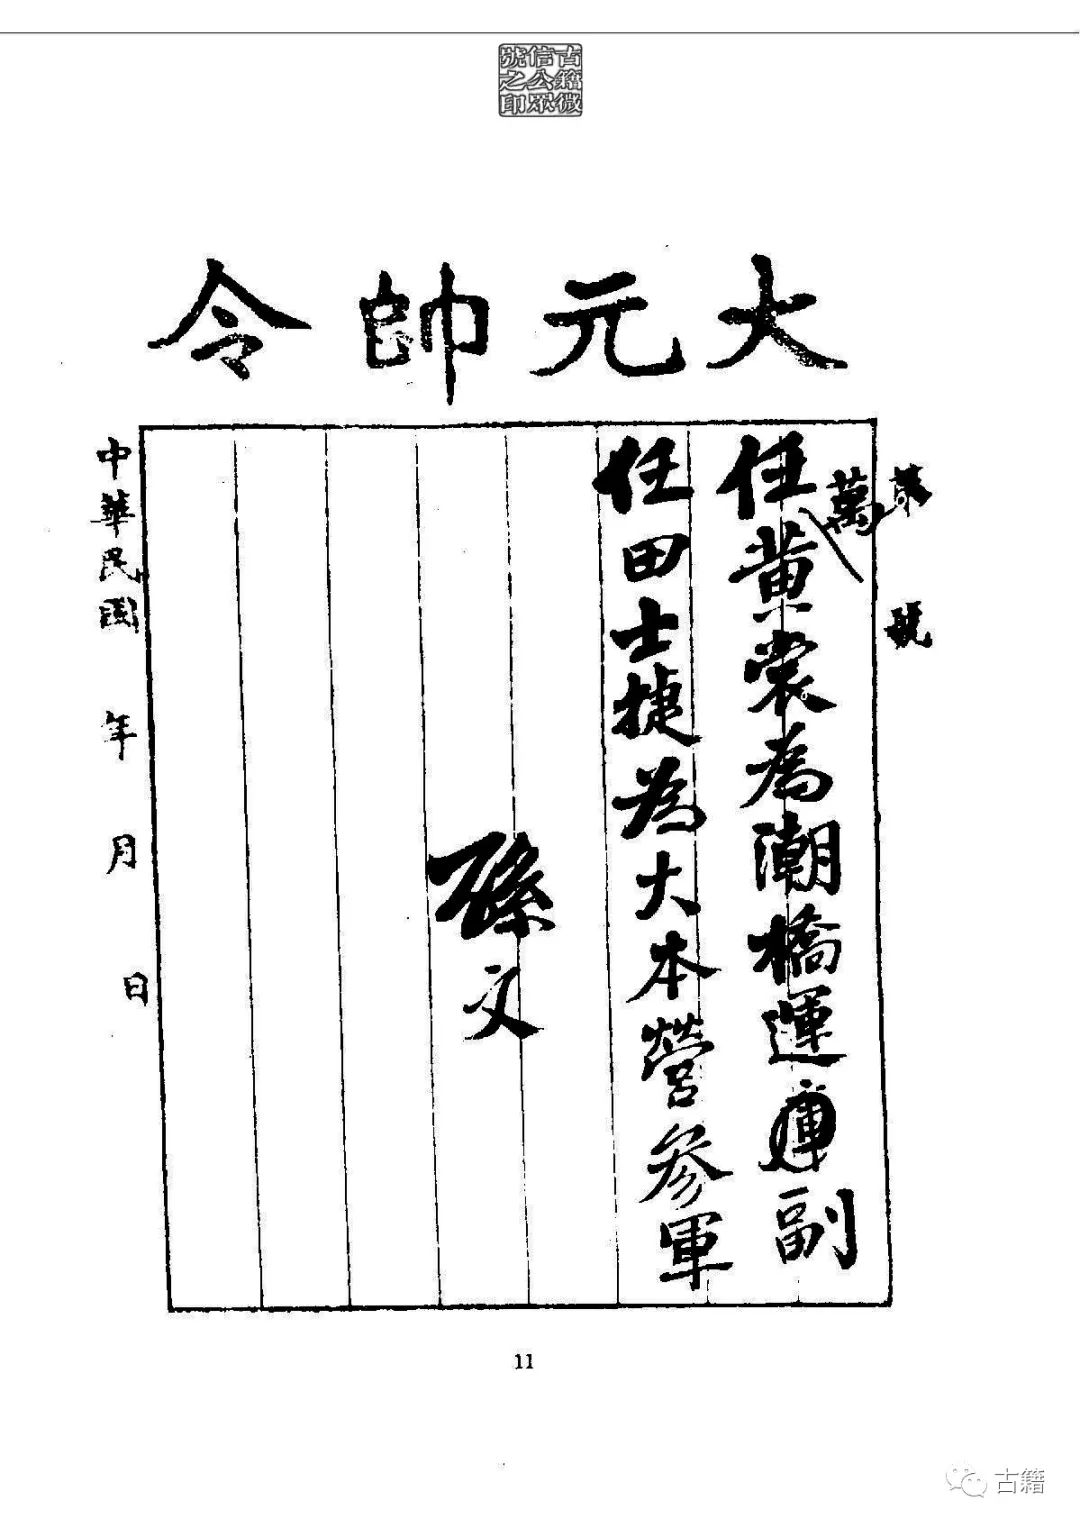 古籍微
信公眾
號之印
大元帥令
第 號
任萬黃裳為潮橋運副
任田士捷為大本營參軍
孫文
中華民國 年 月 日
11
古籍